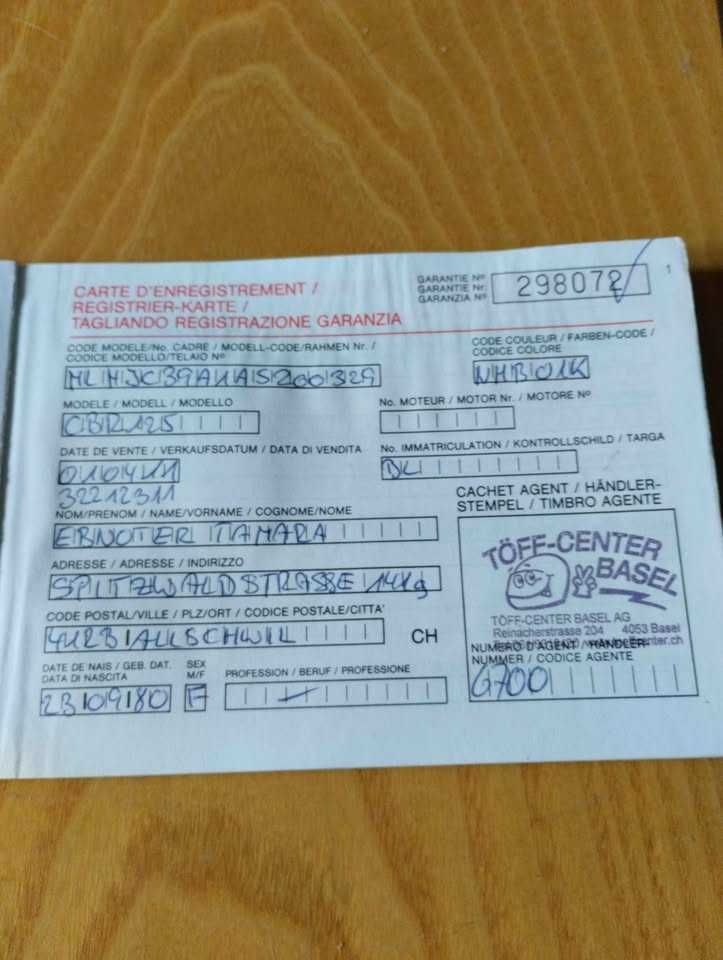 1
CARTE D'ENREGISTREMENT /
REGISTRIER-KARTE /
TAGLIANDO REGISTRAZIONE GARANZIA
GARANTIE No
GARANTIE Nr.
GARANZIA No
298072
CODE MODELE/No. CADRE / MODELL-CODE/RAHMEN Nr. /
CODICE MODELLO/TELAIO No
CODE COULEUR / FARBEN-CODE /
CODICE COLORE
NHB01K
MODELE / MODELL / MODELLO
CBR125
No. MOTEUR / MOTOR Nr. / MOTORE No
DATE DE VENTE / VERKAUFSDATUM / DATA DI VENDITA
010411
32212311
No. IMMATRICULATION / KONTROLLSCHILD / TARGA
BL
NOM/PRENOM / NAME/VORNAME / COGNOME/NOME
EBNÖTER TAMARA
ADRESSE / ADRESSE / INDIRIZZO
SPITZWALDSTRASSE
CODE POSTAL/VILLE / PLZ/ORT / CODICE POSTALE/CITTA'
4123 ALLSCHWIL
CH
DATE DE NAIS / GEB. DAT.
DATA DI NASCITA
230980
SEX
M/F
F
PROFESSION / BERUF / PROFESSIONE
CACHET AGENT / HÄNDLER-
STEMPEL / TIMBRO AGENTE
TÖFF-CENTER
BASEL
TÖFF-CENTER BASEL AG
Reinacherstrasse 204 4053 Basel
NUMERO D'AGENT / HÄNDLER-
NUMMER / CODICE AGENTE
6700